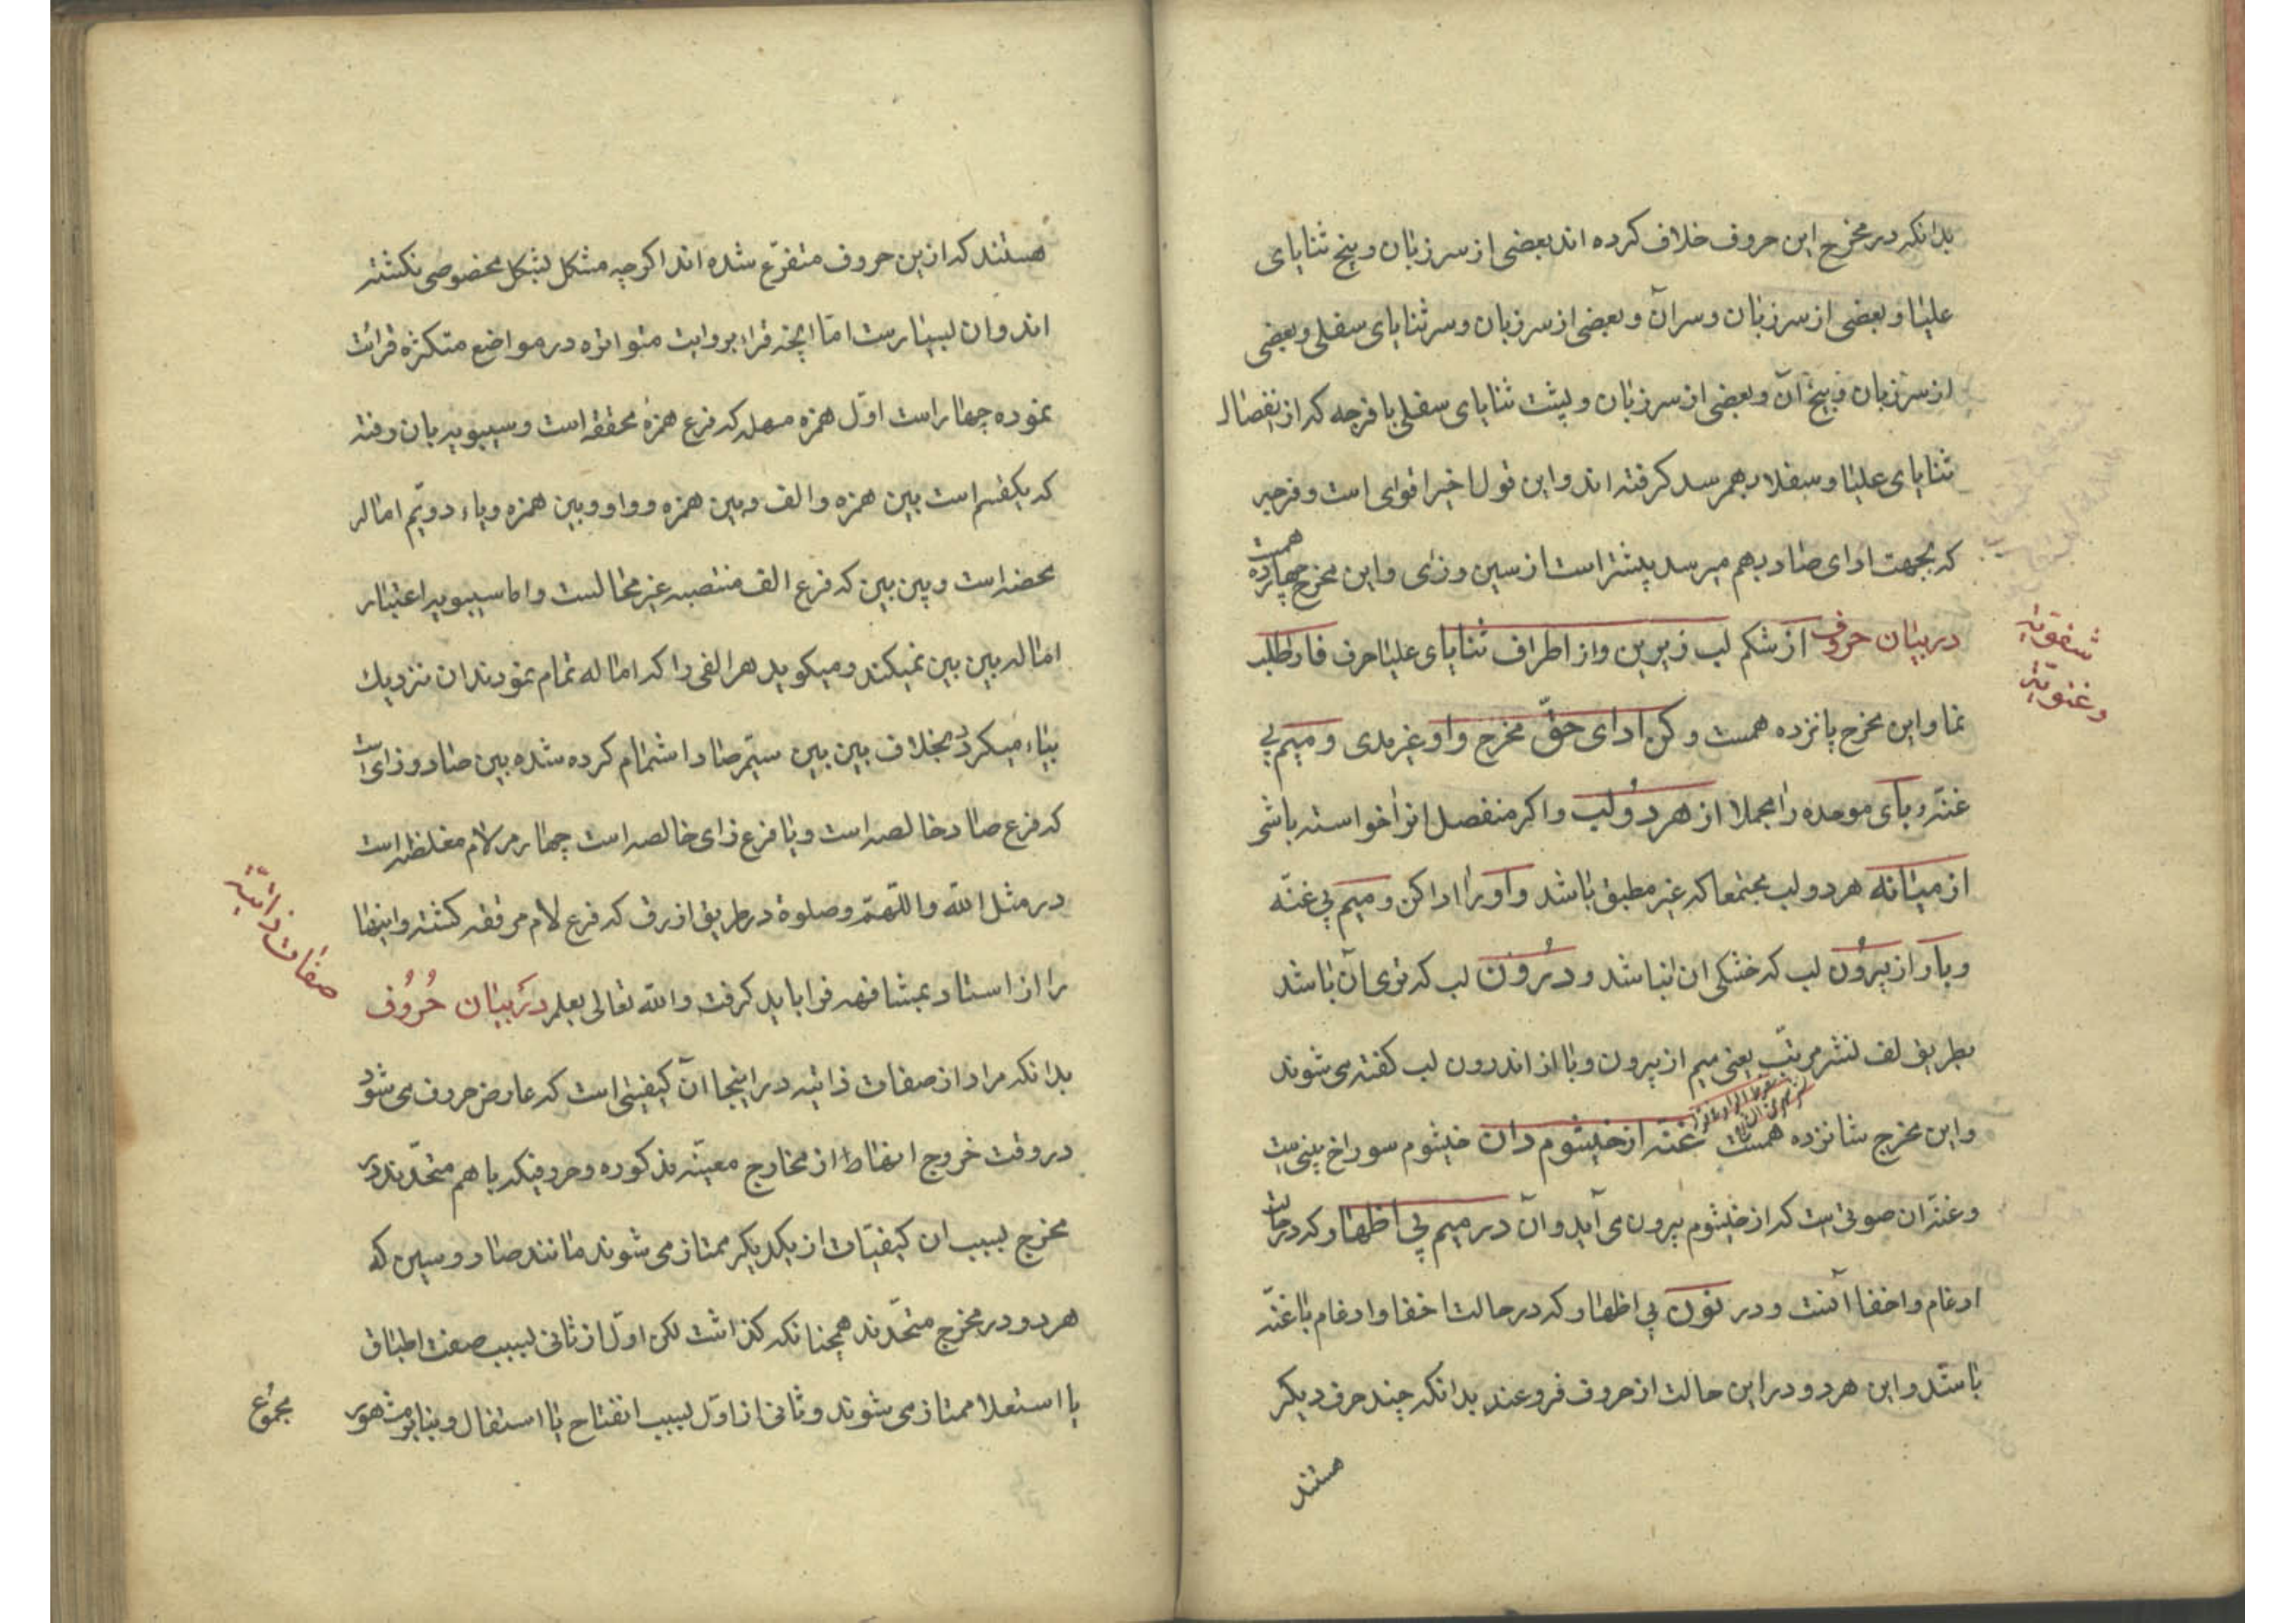 بدانکه در مخرج این حروف خلاف کرده اند بعضی از سر زبان و بیخ ثنایای
علیا و بعضی از سر زبان و سر آن و بعضی از سر زبان و سر ثنایای سفلی و بعضی
از سر زبان و بیخ آن و بعضی از سر زبان و پشت ثنایای سفلی با فرجه که از انفصال
ثنایای علیا و سفلا بهم رسد کرفته اند و این قول اخیر اقوای است و فرجه
که بجهت ادای صاد بهم میرسد پیشتر است از سین و زای و این مخرج چهارده
همست
در بیان حروف از شکم لب زیرین و از اطراف ثنایای علیا حرف فا را طلب
شفویه
و غنویه
نما و این مخرج پانزده همست و کن ادای حقّ مخرج واو غیر مدی و میم بی
غنّه و بای موحده را مجملا از هر دو لب و اکر منفصل انرا خواسته باشی
از میانه هر دو لب مجتمعا که غیر مطبق باشد واو را ادا کن و میم بی غنّه
و با را از بیرون لب که خشکی ان نباشد و درون لب که توی آن باشد
بطریق لف نشر مرتّب یعنی میم از بیرون و با از اندرون لب کفته می شوند
و این مخرج شانزده همست غنّه از خیشوم دان خیشوم سوراخ بینی ست
و غنّه ان صوتی است که از خیشوم بیرون می آید و آن در میم بی اظهار که در حالت
ادغام و اخفا آنست و در نون بی اظهار که در حالت اخفا و ادغام با غنّه
باشد و این هر دو در این حالت از حروف فروعند بدانکه چند حرف دیکر
هستند
هستند که ازین حروف متفرّع شده اند اکرچه مشکل بشکل مخصوصی نکشته
اند و ان بسیار ست امّا انچه قراء بروایت متواتره در مواضع متکثره قرائت
نموده چهار است اوّل همزه مسهله که فرع همزهٔ محققه است و سیبویه بان رفته
که یکقسم است بین همزه و الف و بین همزه و واو و بین همزه و یاء دویّم اماله
محضه است و بین بین که فرع الف منتصبه غیر ممالست و اما سیبویه اعتبار
اماله بین بین نمیکند و میکوید هر الفی را که اماله تمام نمودند ان نزدیك
بیاء میکردد بخلاف بین بین سیّم صاد اشمام کرده شده بین صاد و زای است
که فرع صاد خالصه است و یا فرع زای خالصه است چهارم لام مغلظه است
در مثل اللّه و اللّهمّ و صلوة در طریق ازرق که فرع لام مرققه کشته و اینها
را از استاد بمشافهه فرا باید کرفت واللّه تعالی یعلم در بیان حُرُوف
صفات ذاتیّه
بدانکه مراد از صفات ذاتیه در اینجا آن کیفیتی است که عارض حروف می شود
در وقت خروج انها از مخارج معینّه مذکوره و حروفیکه با هم متحّدند در
مخرج بسبب ان کیفیّات از یکدیکر ممتاز می شوند مانند صاد و سین که
هر دو در مخرج متحّدند همچنانکه کذاشت لکن اوّل از ثانی بسبب صفت اطباق
یا استعلا ممتاز می شوند و ثانی از اوّل بسبب انفتاح یا استفال و بنابر مشهور
مجموع